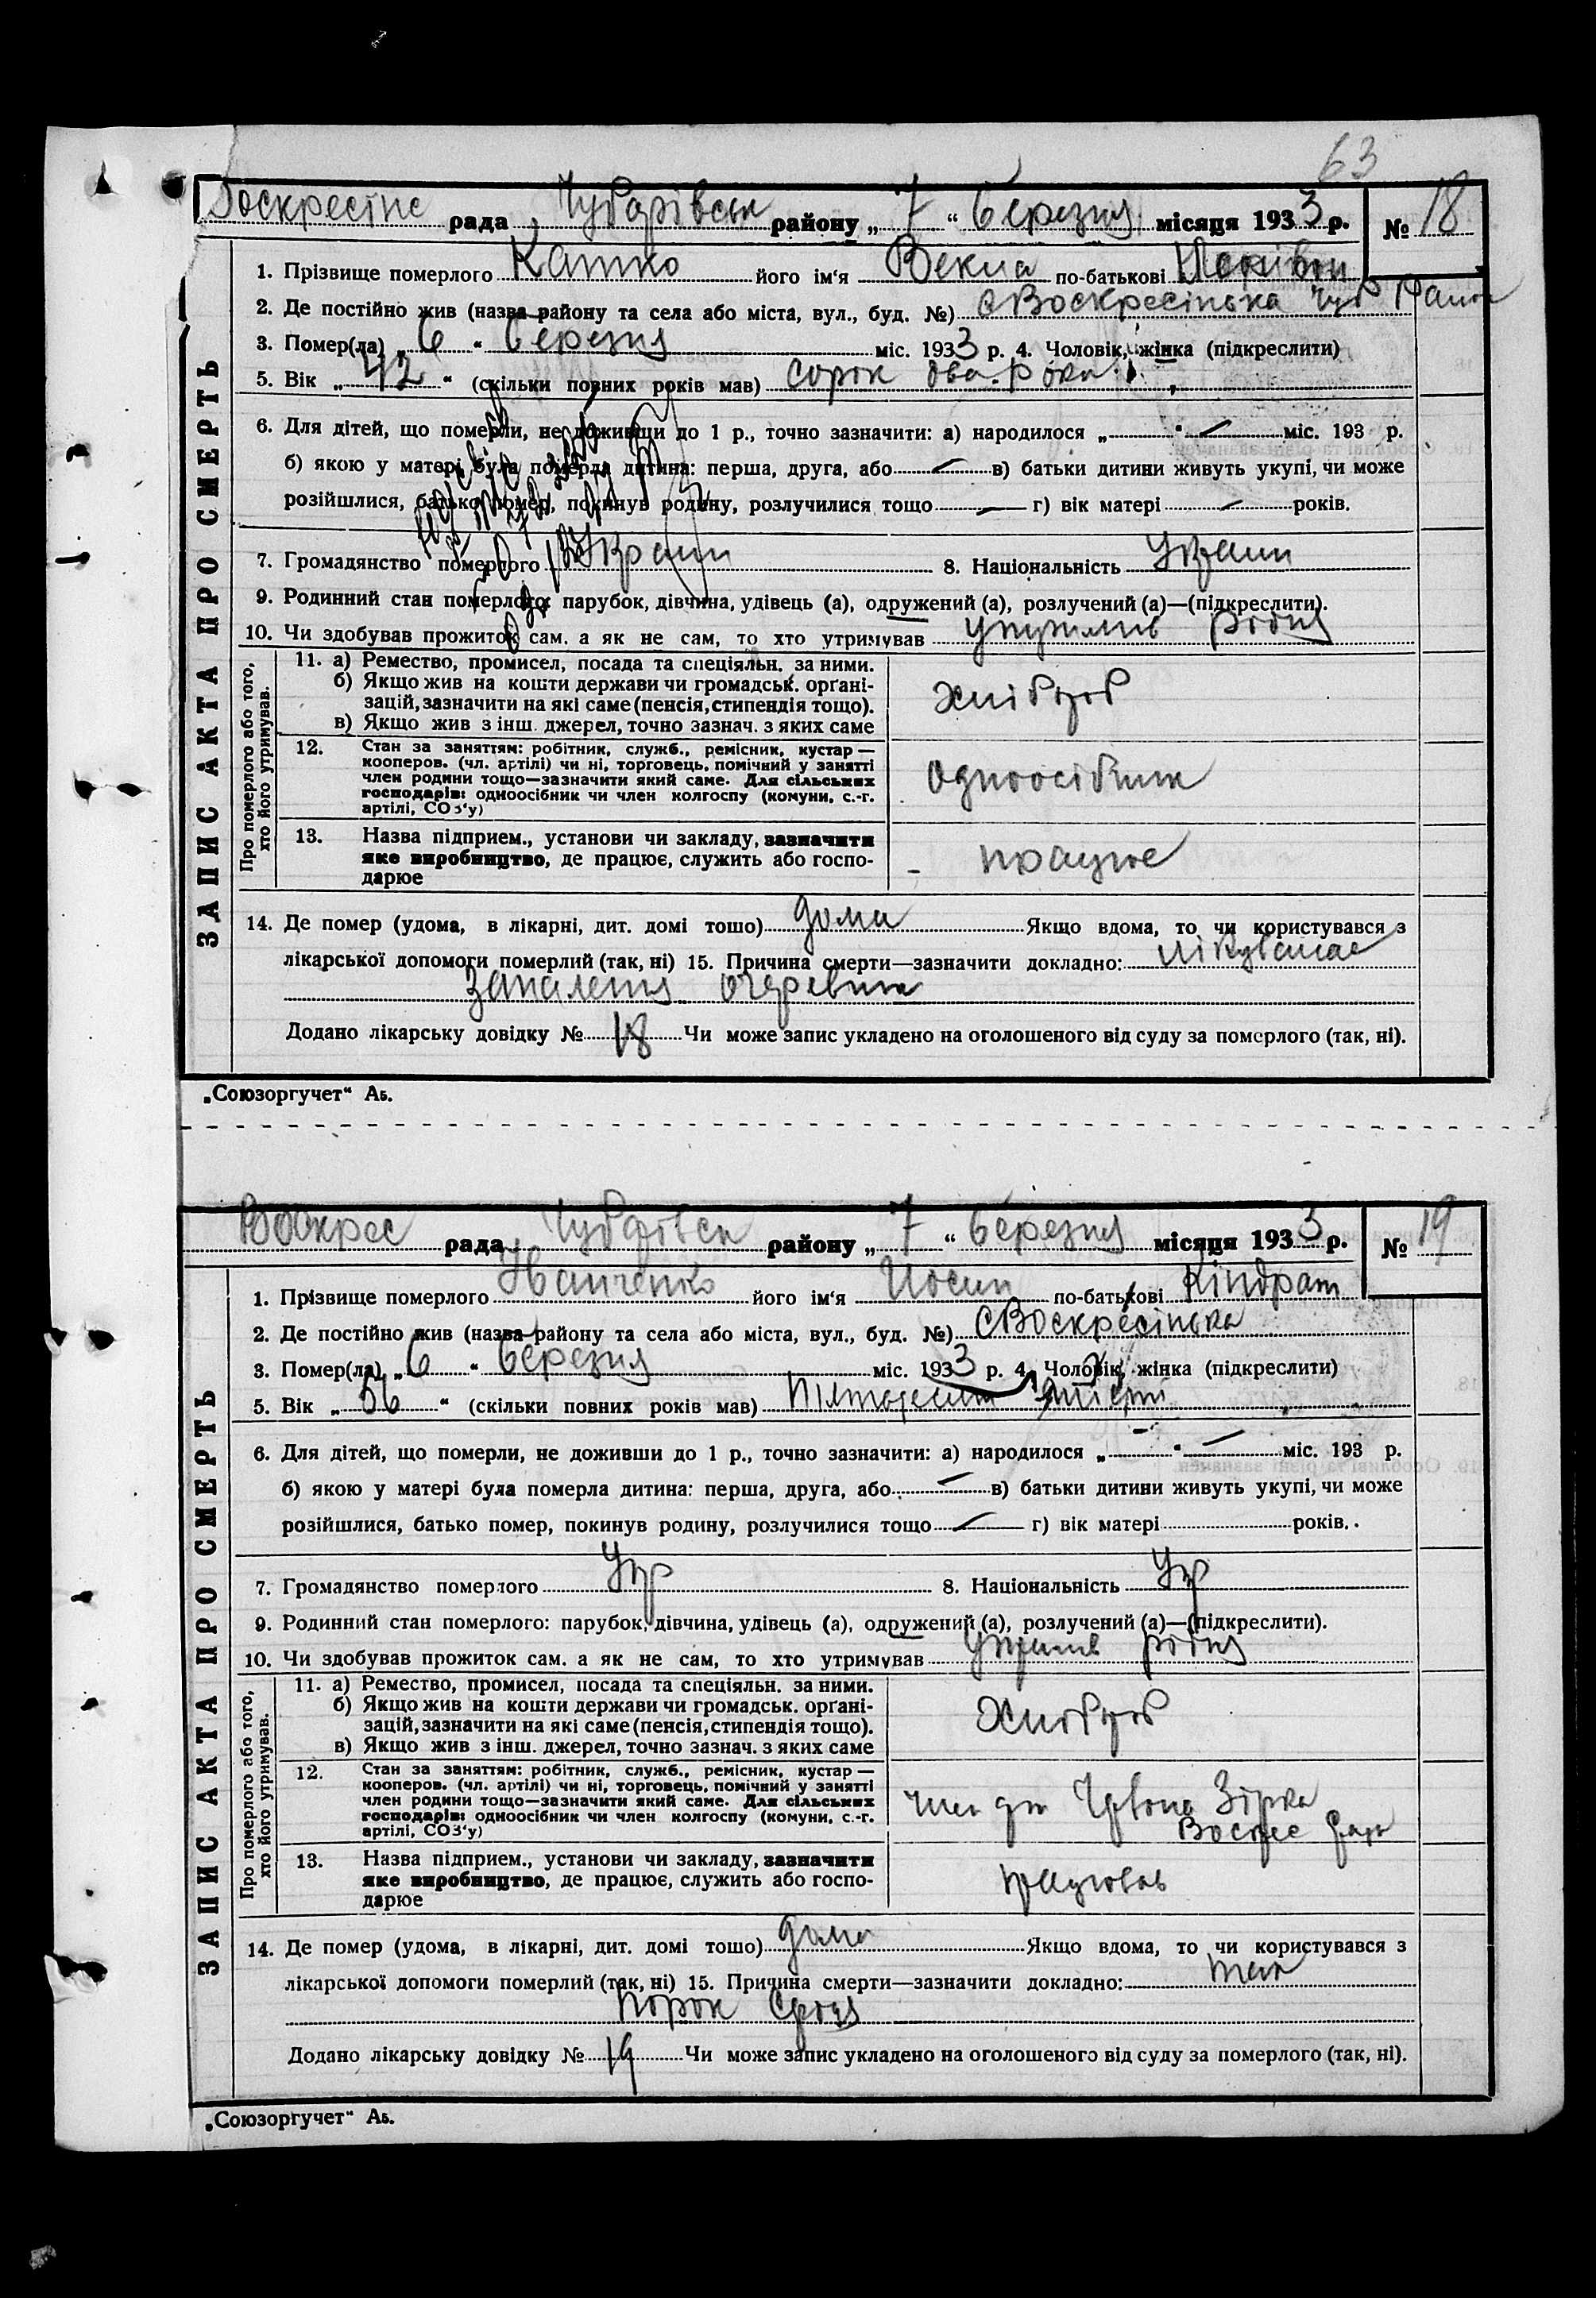 63
Воскресінс рада Чубарівськ району „ 7 “ березня місяця 1933 р. № 18
1. Прізвище померлого Катко його ім‘я Векла по-батькові
2. Де постійно жив (назва району та села або міста, вул., буд. №) с Воскресінька Чуб Райн
3. Помер(ла) „ 6 “ березня міс. 1933 р. 4. Чоловік, жінка (підкреслити)
5. Вік „ 42 “ (скільки повних років мав) сорок два рока
6. Для дітей, що померли, не доживши до 1 р., точно зазначити: а) народилося „ “ міс. 193 р.
б) якою у матері була померла дитина: перша, друга, або в) батьки дитини живуть укупі, чи може
розійшлися, батько помер, покинув родину, розлучилися тощо г) вік матері років.
7. Громадянство померлого Украин 8. Національність Украин
9. Родинний стан померлого: парубок, дівчина, удівець (а), одружений (а), розлучений (а)—(підкреслити).
10. Чи здобував прожиток сам, а як не сам, то хто утримував
ЗАПИС АКТА ПРО СМЕРТЬ
Про померлого або того, хто його утримував.
11. а) Ремество, промисел, посада та спеціяльн. за ними.
б) Якщо жив на кошти держави чи громадськ. органі-
зацій, зазначити на які саме (пенсія, стипендія тощо).
в) Якщо жив з інш. джерел, точно зазнач. з яких саме
Хлібороб
12. Стан за заняттям: робітник, служб., ремісник, кустар —
кооперов. (чл. артілі) чи ні, торговець, помічний у занятті
член родини тощо—зазначити який саме. Для сільських
господарів: одноосібник чи член колгоспу (комуни, с.-г.
артілі, СОЗ‘у)
одноосібник
13. Назва підприєм., установи чи закладу, зазначити
яке виробництво, де працює, служить або госпо-
дарює
працює
14. Де помер (удома, в лікарні, дит. домі тошо) дома Якщо вдома, то чи користувався з
лікарської допомоги померлий (так, ні) 15. Причина смерти—зазначити докладно:
Запалення
Додано лікарську довідку № 18 Чи може запис укладено на оголошеного від суду за померлого (так, ні).
„Союзоргучет“ Аб.
Воскрес рада Чубарівськ району „ 7 “ березня місяця 1933 р. № 19
1. Прізвище померлого Іванченко його ім‘я Йосип по-батькові Кіндрат
2. Де постійно жив (назва району та села або міста, вул., буд. №) с Воскресінька
3. Помер(ла) „ 6 “ березня міс. 1933 р. 4. Чоловік, жінка (підкреслити)
5. Вік „ 56 “ (скільки повних років мав)
6. Для дітей, що померли, не доживши до 1 р., точно зазначити: а) народилося „ “ міс. 193 р.
б) якою у матері була померла дитина: перша, друга, або в) батьки дитини живуть укупі, чи може
розійшлися, батько помер, покинув родину, розлучилися тощо г) вік матері років.
7. Громадянство померлого Укр 8. Національність Укр
9. Родинний стан померлого: парубок, дівчина, удівець (а), одружений (а), розлучений (а)—(підкреслити).
10. Чи здобував прожиток сам, а як не сам, то хто утримував
ЗАПИС АКТА ПРО СМЕРТЬ
Про померлого або того, хто його утримував.
11. а) Ремество, промисел, посада та спеціяльн. за ними.
б) Якщо жив на кошти держави чи громадськ. органі-
зацій, зазначити на які саме (пенсія, стипендія тощо).
в) Якщо жив з інш. джерел, точно зазнач. з яких саме
Хлібороб
12. Стан за заняттям: робітник, служб., ремісник, кустар —
кооперов. (чл. артілі) чи ні, торговець, помічний у занятті
член родини тощо—зазначити який саме. Для сільських
господарів: одноосібник чи член колгоспу (комуни, с.-г.
артілі, СОЗ‘у)
член арт Червона Зірка
13. Назва підприєм., установи чи закладу, зазначити
яке виробництво, де працює, служить або госпо-
дарює
працював
14. Де помер (удома, в лікарні, дит. домі тошо) дома Якщо вдома, то чи користувався з
лікарської допомоги померлий (так, ні) 15. Причина смерти—зазначити докладно: так
порок серця
Додано лікарську довідку № 19 Чи може запис укладено на оголошеного від суду за померлого (так, ні).
„Союзоргучет“ Аб.